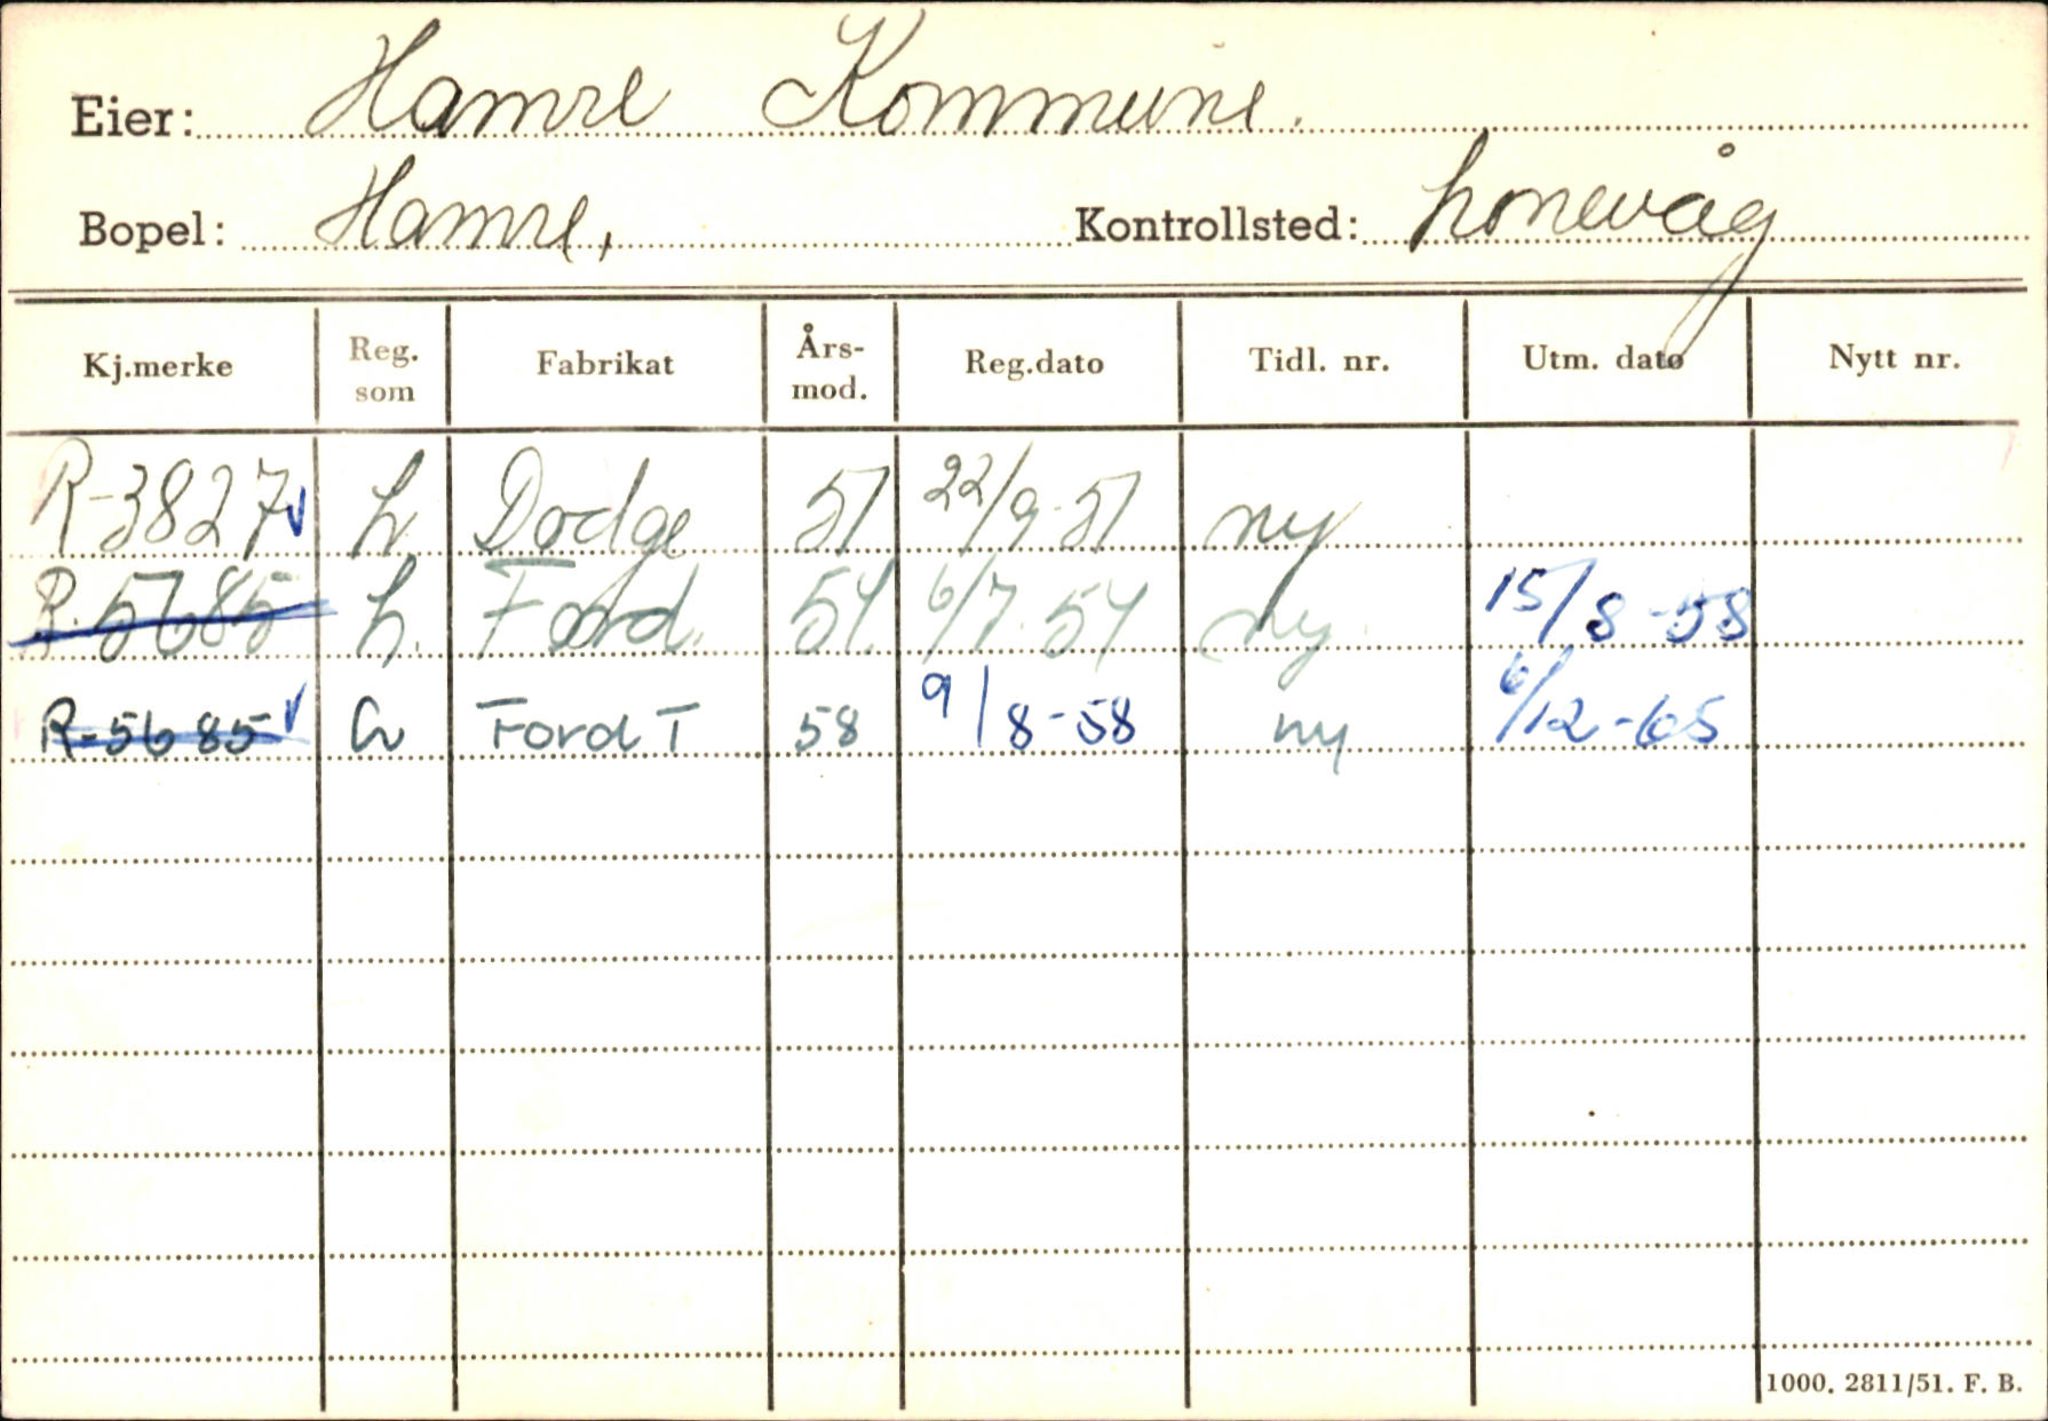 Eier: Hamre Kommune.
Bopel: Hamre, Kontrollsted: Lonevåg
Kj.merke Reg. som Fabrikat Års-mod. Reg.dato Tidl. nr. Utm. dato Nytt nr.
R-3827 L Dodge 51 22/9-51 ny
R-5685 L. Ford 54. 6/7-54 ny 15/8-58
R-5685 Ford T 58 9/8-58 ny 6/12-65
1000. 2811/51. F. B.